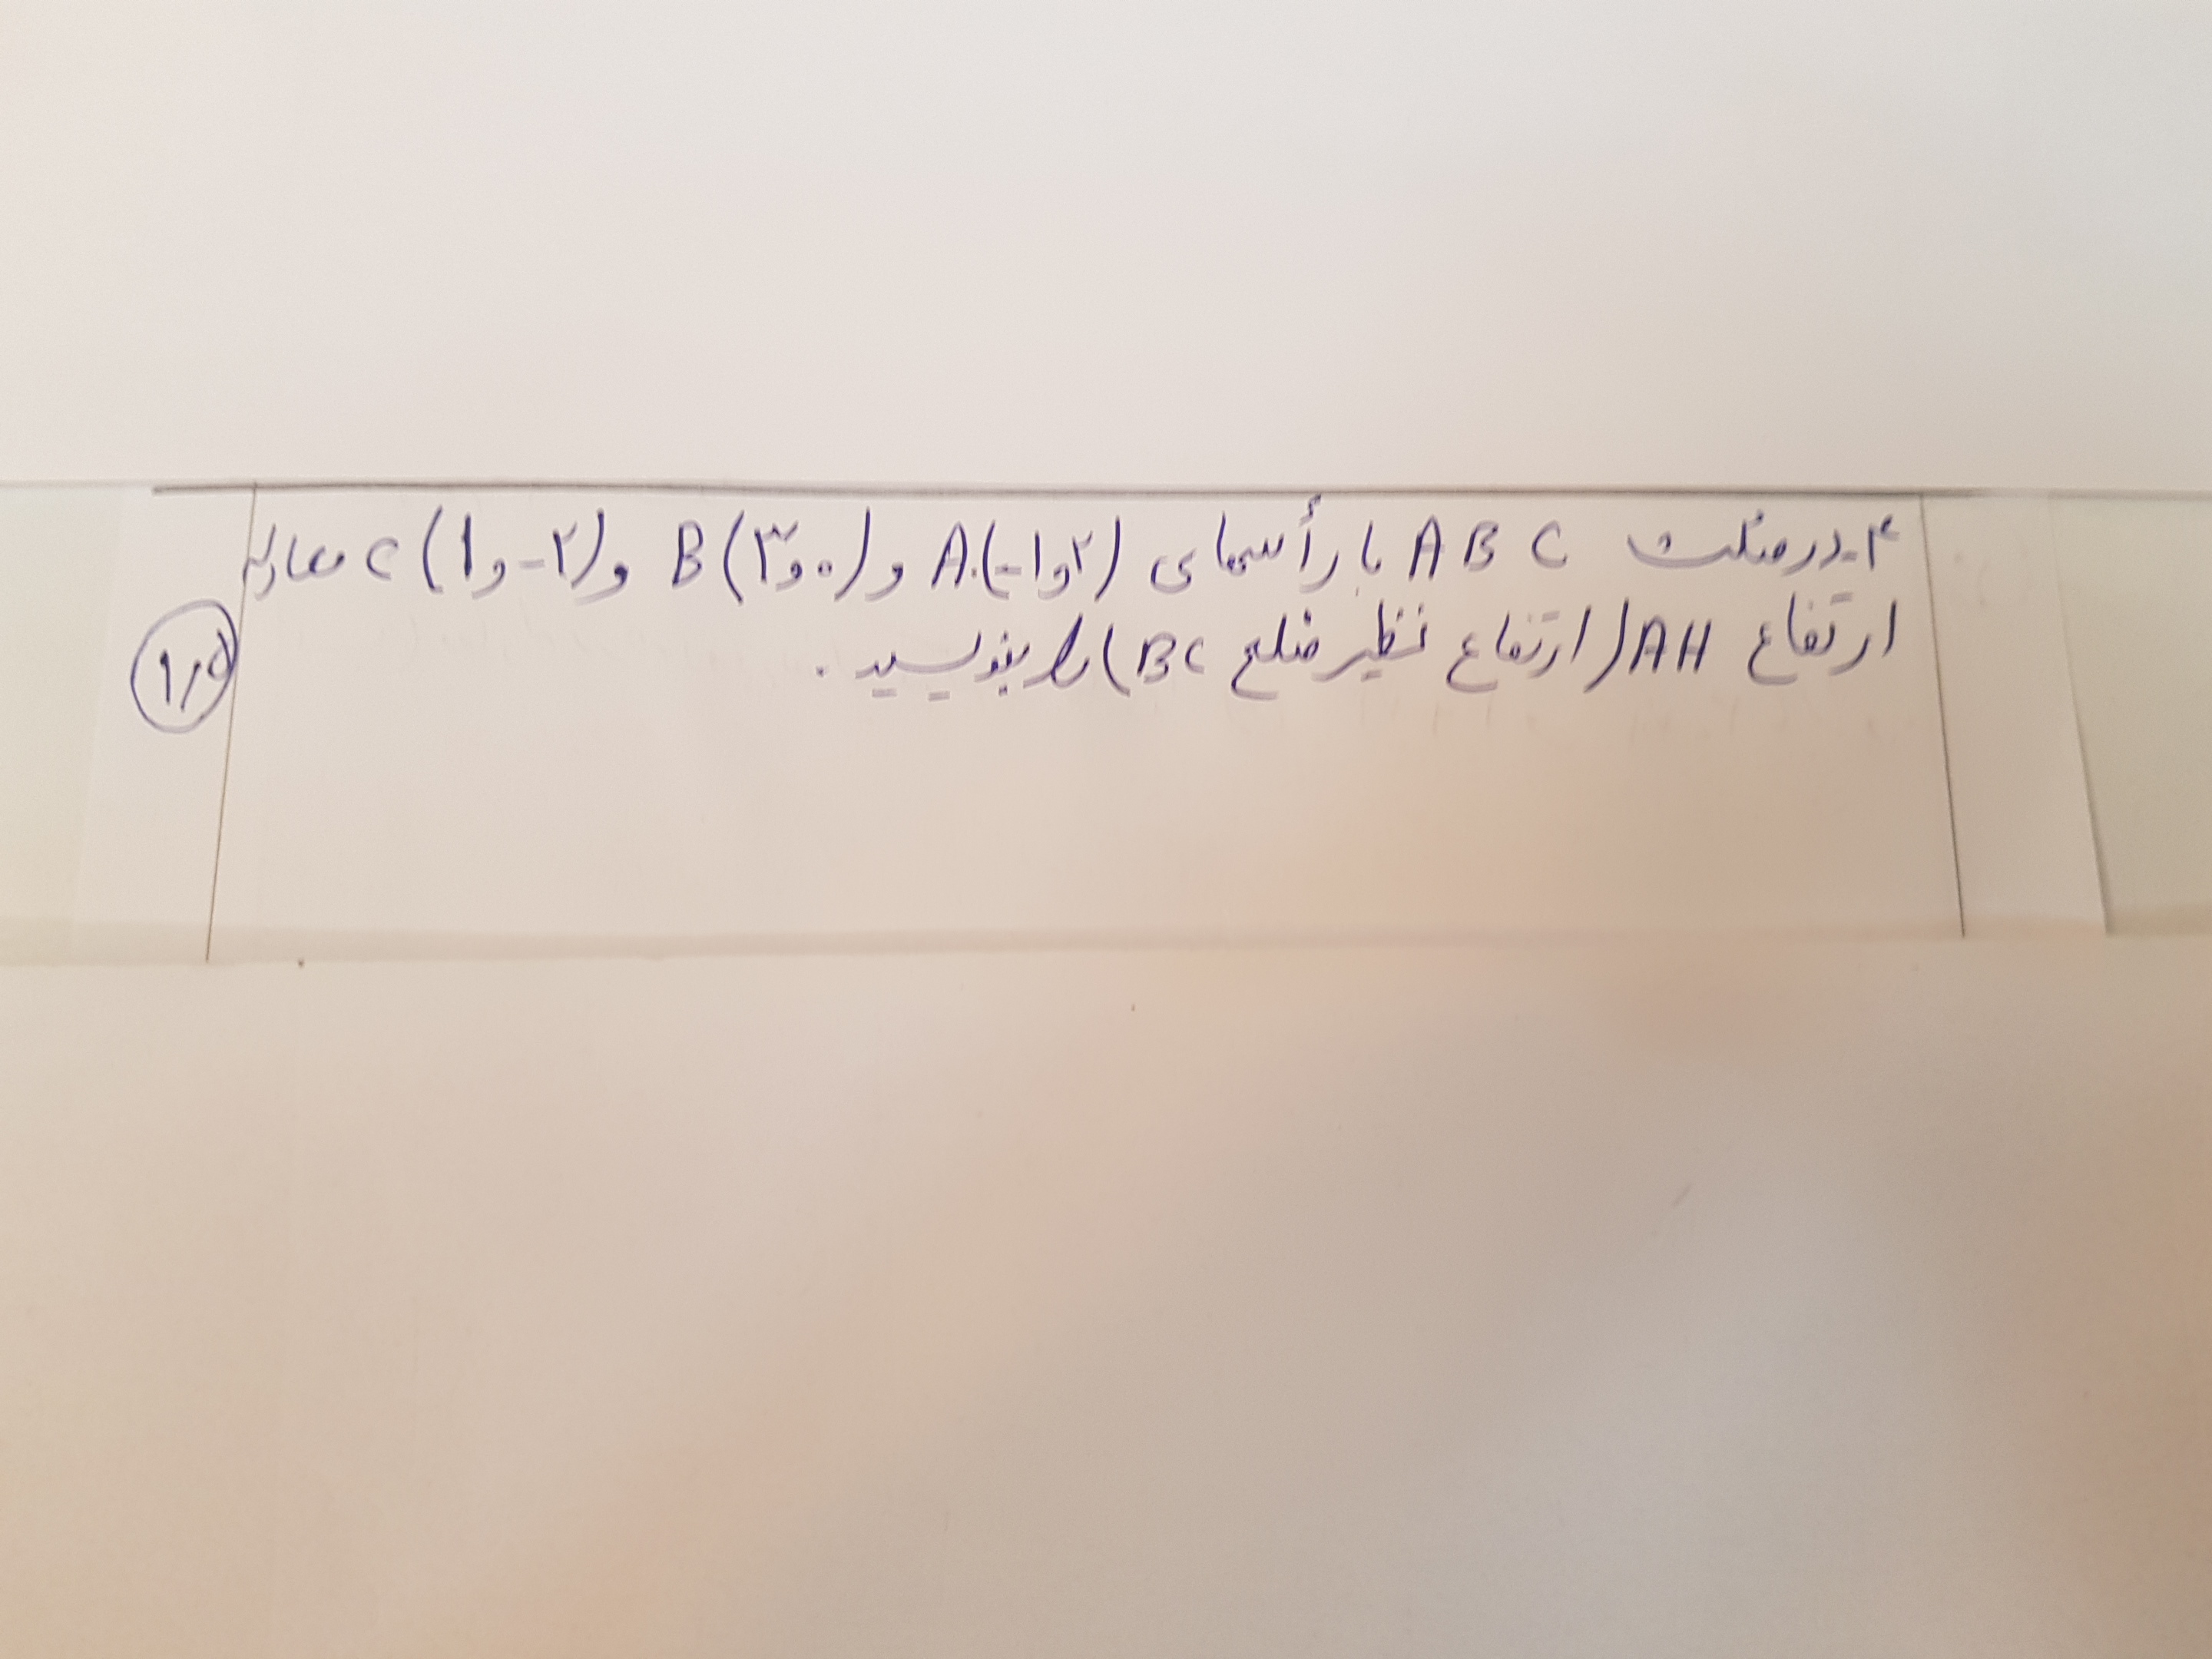 ۴-در مثلث A B C با رأسهای A(-۱و۲) و B(۳و۰) و C(۱و-۲) معادله
ارتفاع AH (ارتفاع نظیر ضلع BC) را بنویسید .
۱/۵